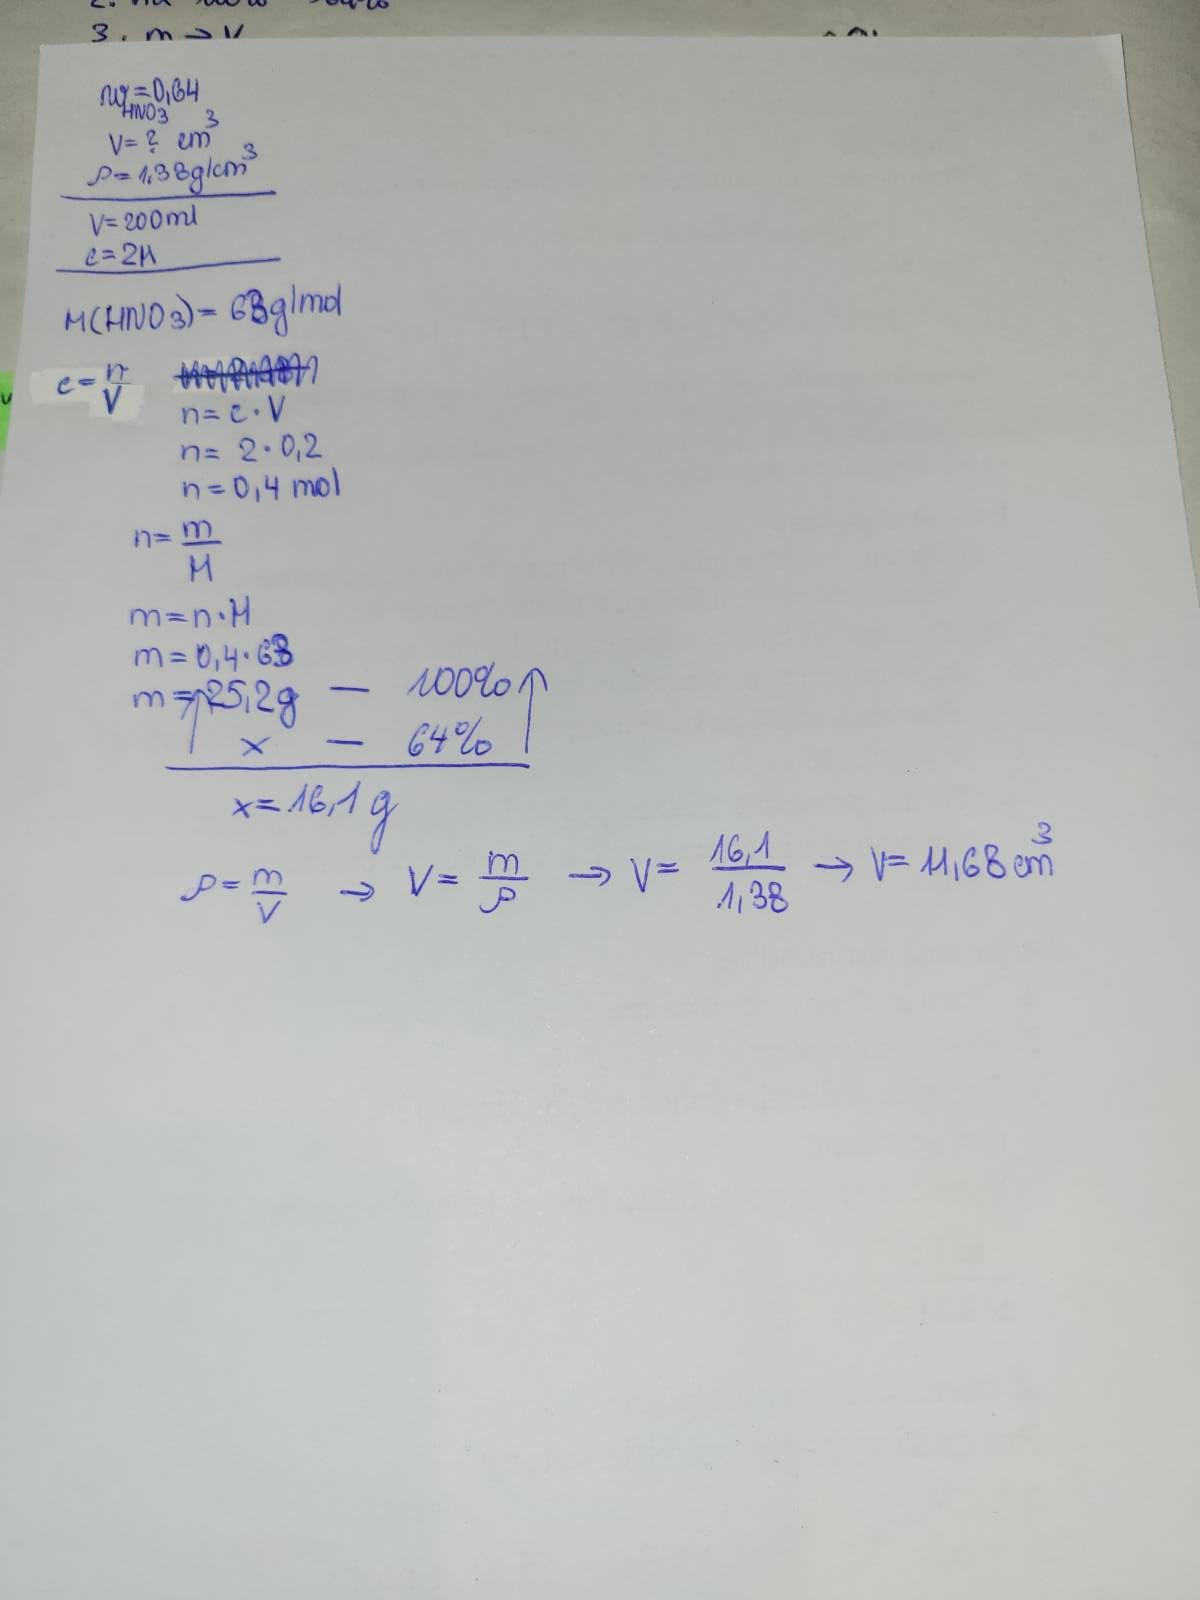 3. m → V
w = 0,64
HNO3
V = ? cm³
ρ = 1,38 g/cm³
V = 200 ml
c = 2M
M(HNO3) = 63 g/mol
c = n/V
n = c · V
n = 2 · 0,2
n = 0,4 mol
n = m/M
m = n · M
m = 0,4 · 63
m = 25,2g — 100%
x — 64%
x = 16,1 g
ρ = m/V → V = m/ρ → V = 16,1/1,38 → V = 11,68 cm³